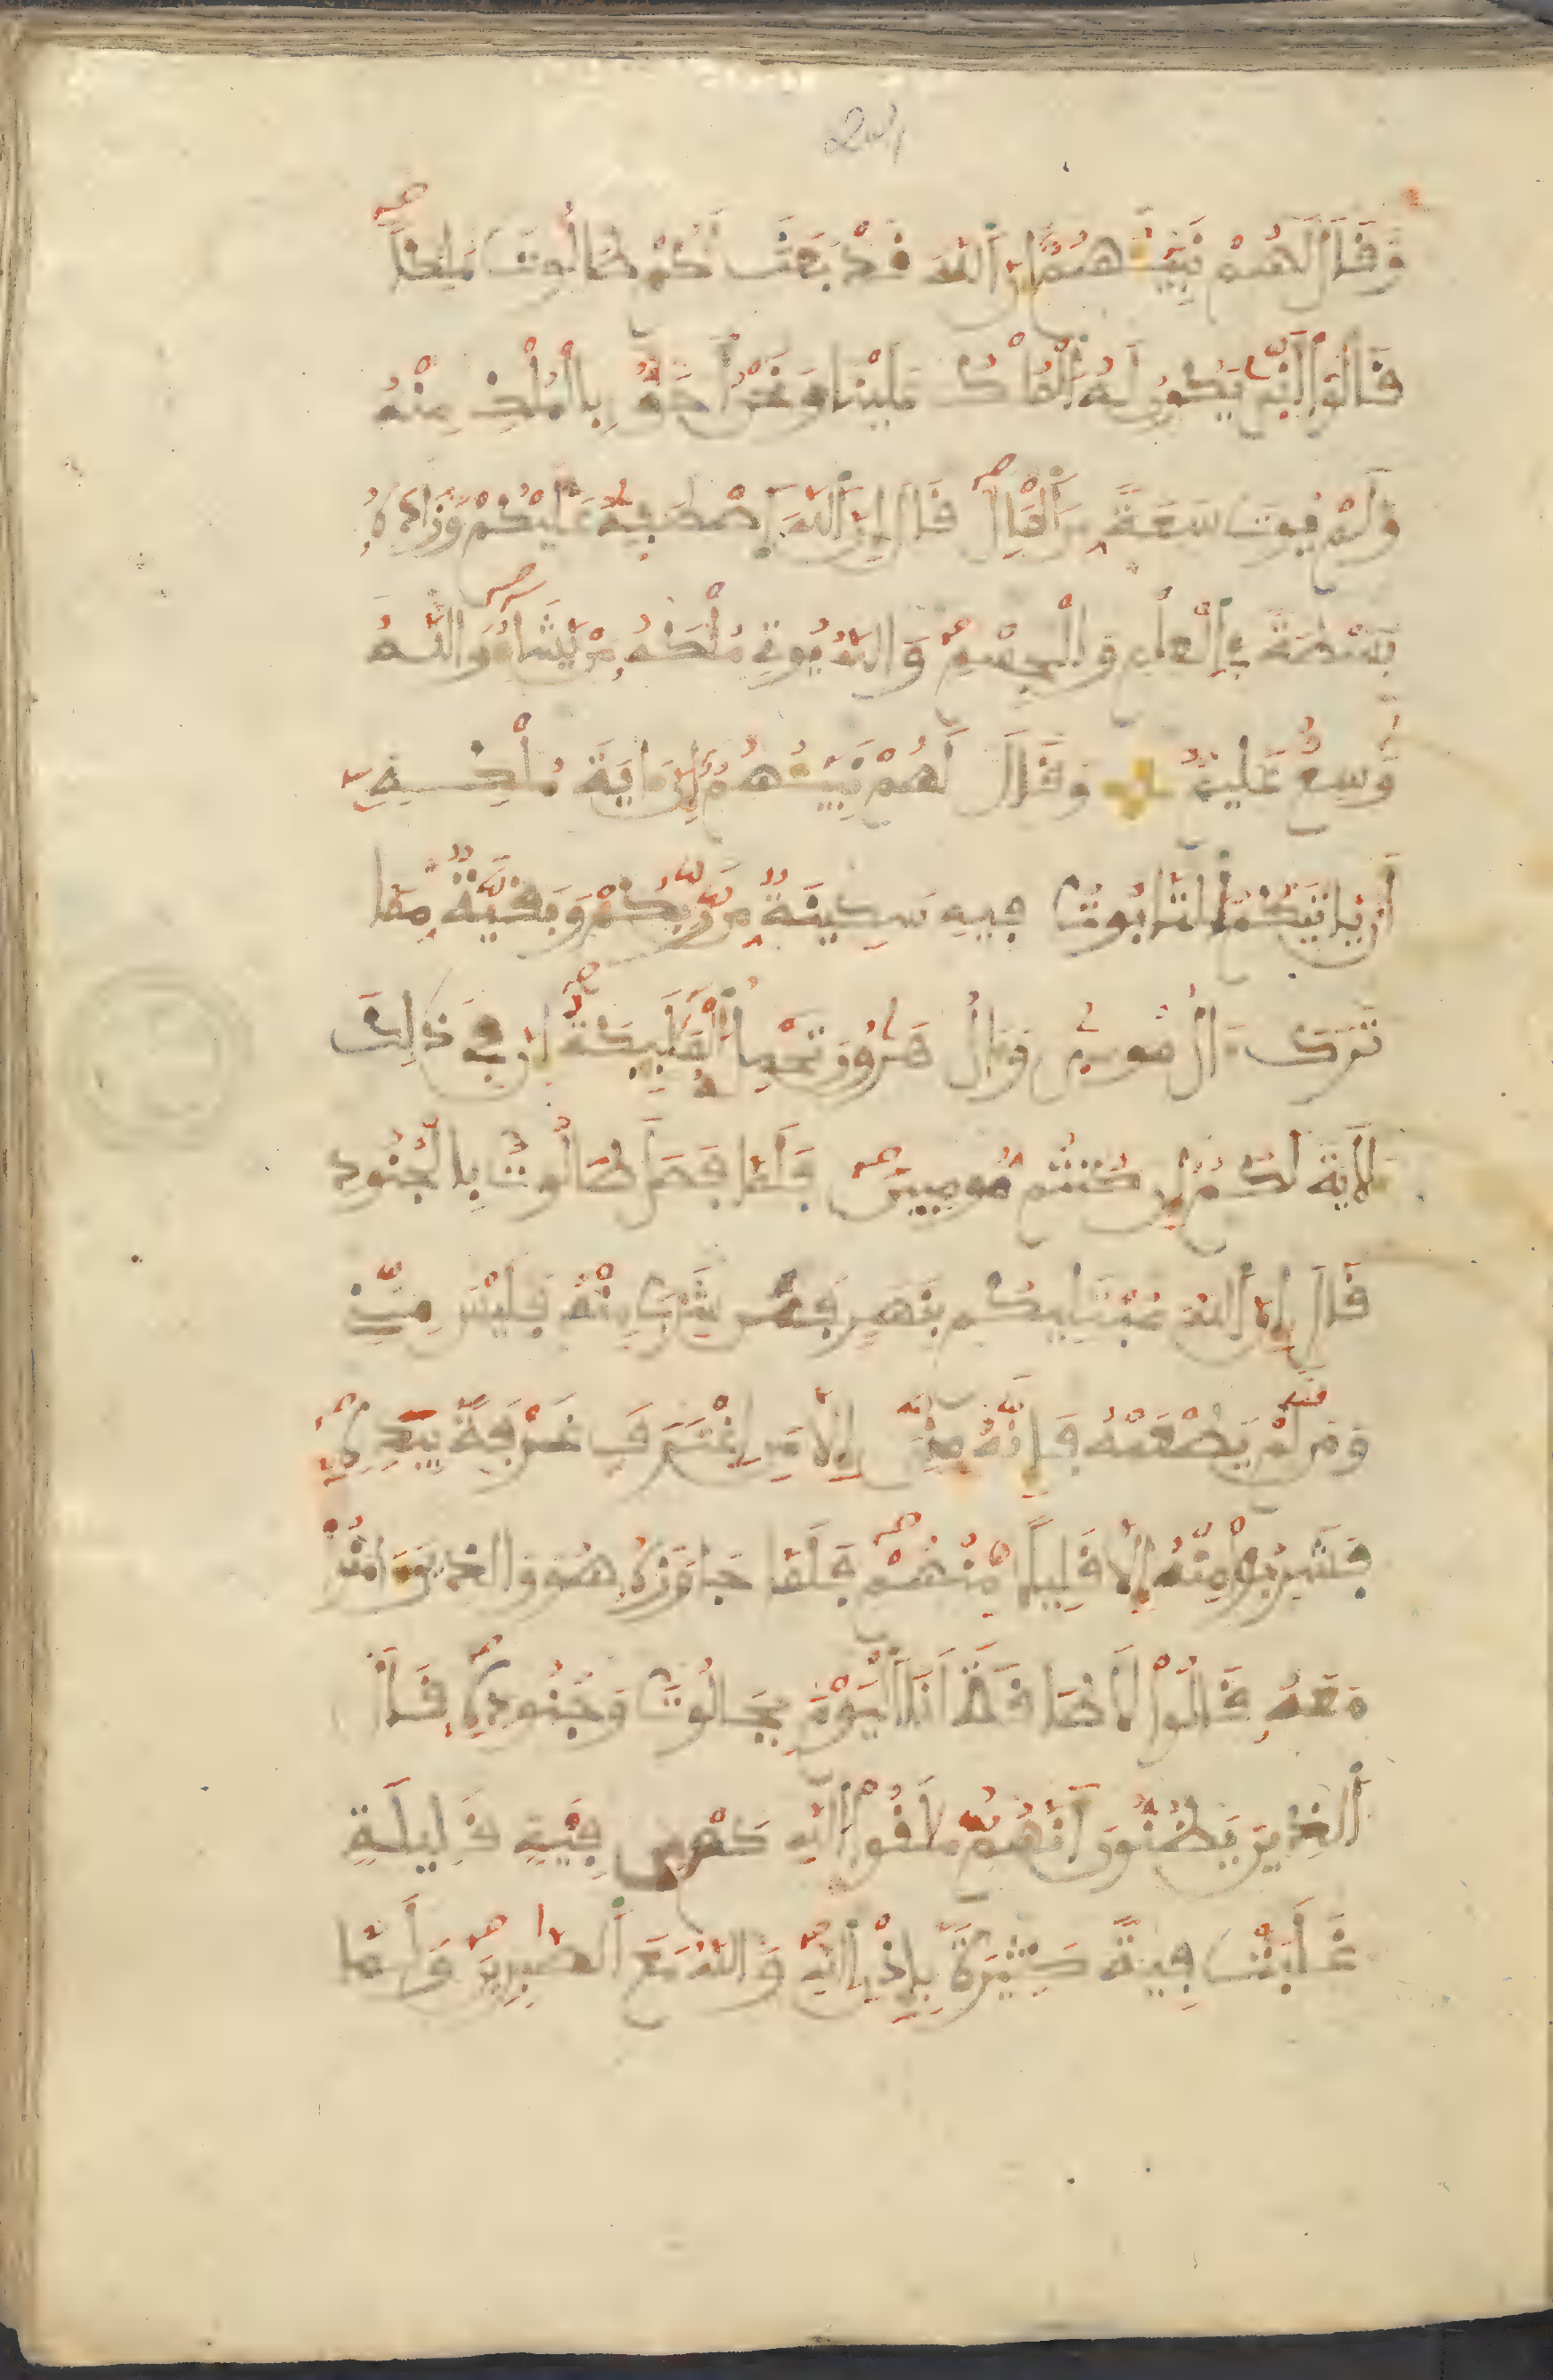 241
وَقَالَ لَهُمْ نَبِيٓـُٔهُمُۥٓ إِنَّ ٱللَّهَ قَدْ بَعَثَ لَكُمْ طَالُوتَ مَلِكٗا
قَالُوٓاْ أَنّۭىٰ يَكُونُ لَهُ ٱلْمُلْكُ عَلَيْنَا وَنَحْنُ أَحَقُّ بِالْمُلْكِ مِنْهُ
وَلَمْ يُوتَ سَعَةٗ مِّنَ ٱلْمَالِ قَالَ إِنَّ ٱللَّهَ ٱصْطَفۭىٰهُ عَلَيْكُمْ وَزَادَهُۥ
بَسْطَةٗ فِي ٱلْعِلْمِ وَالْجِسْمِ وَاللَّهُ يُوتِي مُلْكَهُۥ مَنْ يَّشَآءُ وَاللَّهُ
وَٰسِعٌ عَلِيمٞ وَقَالَ لَهُمْ نَبِيٓـُٔهُمُۥٓ إِنَّ ءَايَةَ مُلْكِهِۦٓ
أَنْ يَّاتِيَكُمُ ٱلتَّابُوتُ فِيهِ سَكِينَةٞ مِّن رَّبِّكُمْ وَبَقِيَّةٞ مِّمَّا
تَرَكَ ءَالُ مُوسۭىٰ وَءَالُ هَٰرُونَ تَحْمِلُهُ ٱلْمَلَٰٓئِكَةُ إِنَّ فِي ذَٰلِكَ
لَأٓيَةٗ لَّكُمُۥٓ إِن كُنتُم مُّومِنِينَ فَلَمَّا فَصَلَ طَالُوتُ بِالْجُنُودِ
قَالَ إِنَّ ٱللَّهَ مُبْتَلِيكُم بِنَهَرٖ فَمَن شَرِبَ مِنْهُ فَلَيْسَ مِنِّے
وَمَن لَّمْ يَطْعَمْهُ فَإِنَّهُۥ مِنِّيٓ إِلَّا مَنِ ٱغْتَرَفَ غَرْفَةَۢ بِيَدِهِۦ
فَشَرِبُواْ مِنْهُ إِلَّا قَلِيلٗا مِّنْهُمْ فَلَمَّا جَاوَزَهُۥ هُوَ وَالذِينَ ءَامَنُواْ
مَعَهُۥ قَالُواْ لَا طَاقَةَ لَنَا ٱلْيَوْمَ بِجَالُوتَ وَجُنُودِهِۦ قَالَ
ٱلذِينَ يَظُنُّونَ أَنَّهُم مُّلَٰقُواْ ٱللَّهِ كَم مِّن فِيَةٖ قَلِيلَةٍ
غَلَبَتْ فِيَةٗ كَثِيرَةَۢ بِإِذْنِ ٱللَّهِ وَاللَّهُ مَعَ ٱلصَّٰبِرِينَ وَلَمَّا